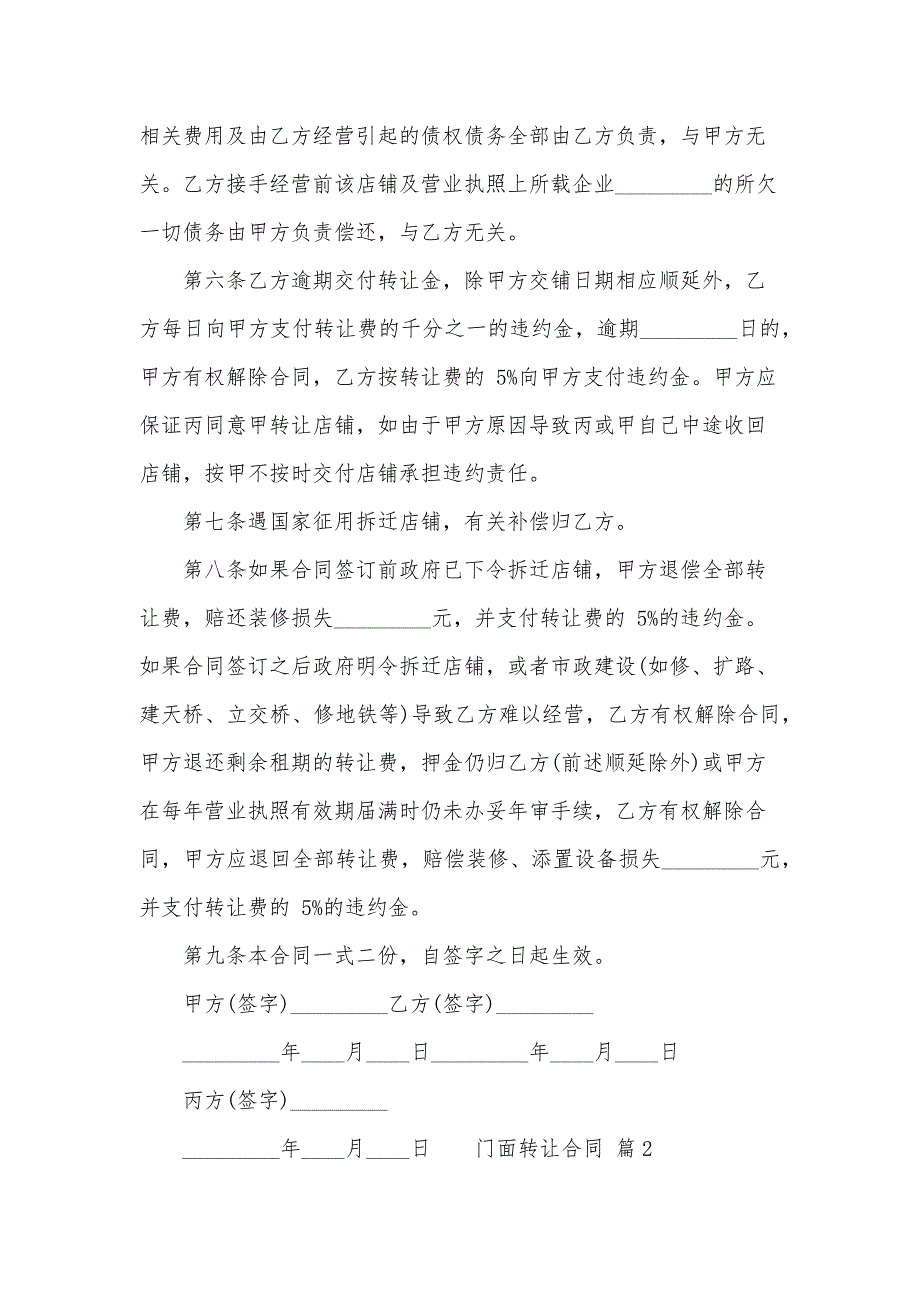 相关费用及由乙方经营引起的债权债务全部由乙方负责，与甲方无
关。乙方接手经营前该店铺及营业执照上所载企业_________的所欠
一切债务由甲方负责偿还，与乙方无关。
第六条乙方逾期交付转让金，除甲方交铺日期相应顺延外，乙
方每日向甲方支付转让费的千分之一的违约金，逾期_________日的，
甲方有权解除合同，乙方按转让费的 5%向甲方支付违约金。甲方应
保证丙同意甲转让店铺，如由于甲方原因导致丙或甲自己中途收回
店铺，按甲不按时交付店铺承担违约责任。
第七条遇国家征用拆迁店铺，有关补偿归乙方。
第八条如果合同签订前政府已下令拆迁店铺，甲方退偿全部转
让费，赔还装修损失_________元，并支付转让费的 5%的违约金。
如果合同签订之后政府明令拆迁店铺，或者市政建设(如修、扩路、
建天桥、立交桥、修地铁等)导致乙方难以经营，乙方有权解除合同，
甲方退还剩余租期的转让费，押金仍归乙方(前述顺延除外)或甲方
在每年营业执照有效期届满时仍未办妥年审手续，乙方有权解除合
同，甲方应退回全部转让费，赔偿装修、添置设备损失_________元，
并支付转让费的 5%的违约金。
第九条本合同一式二份，自签字之日起生效。
甲方(签字)_________乙方(签字)_________
_________年____月____日_________年____月____日
丙方(签字)_________
_________年____月____日 门面转让合同 篇2